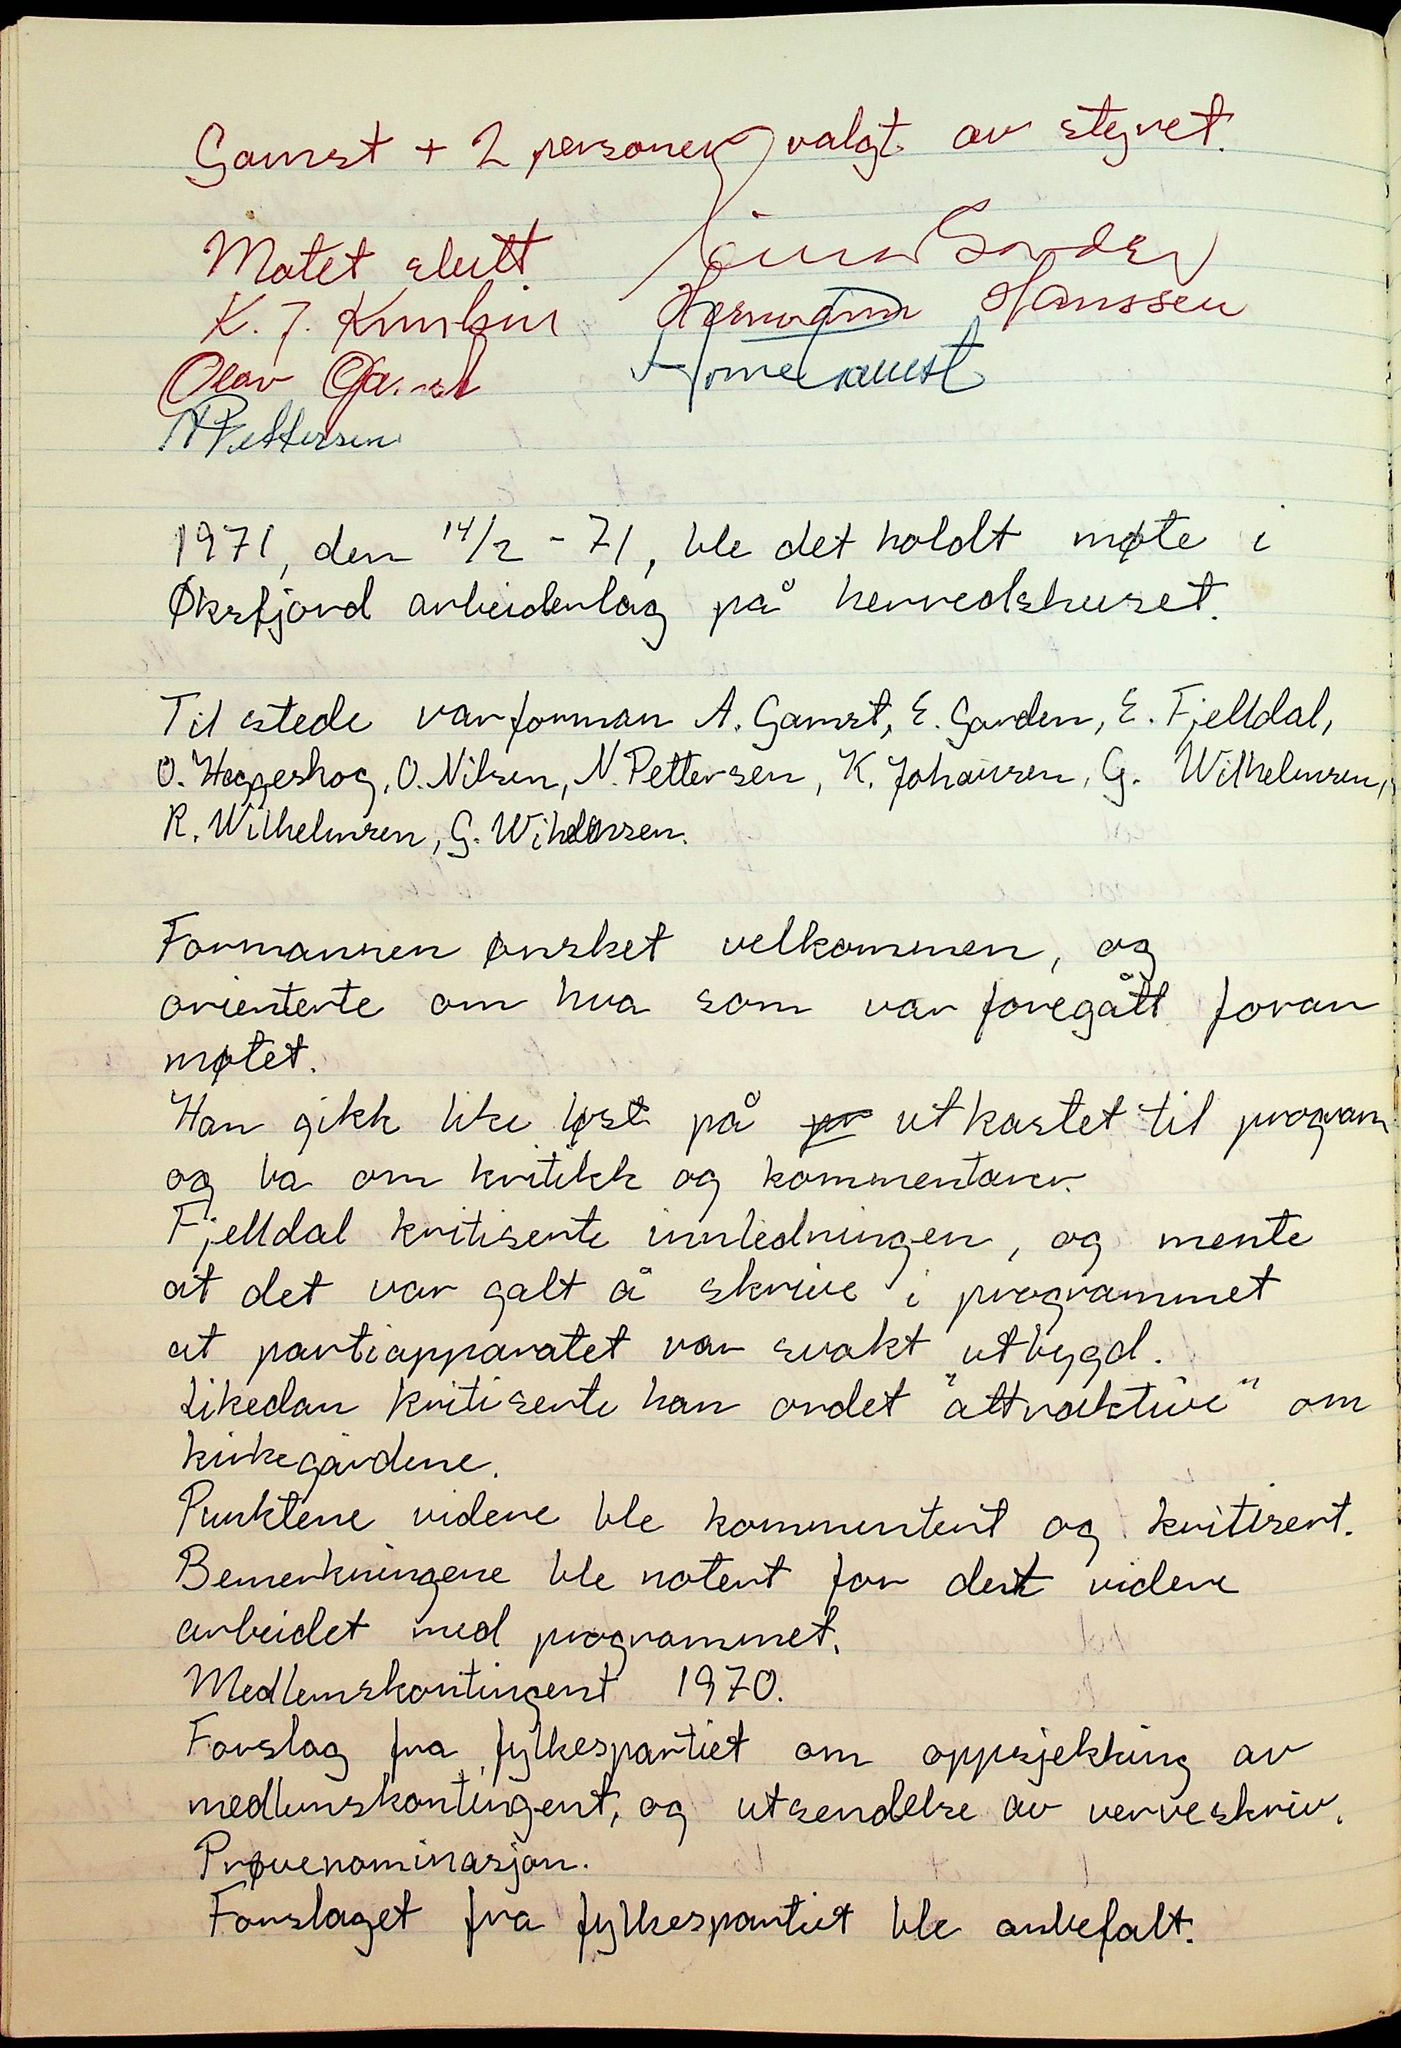 Gamst + 2 personer valgt av styret.
Møtet slutt
Einar Garden
K. J.
Hermann Hanssen
Olav
Arne Gamst
N Pettersen
1971, den 14/2 - 71, ble det holdt møte i
Øksfjord arbeiderlag på herredshuset.
Til stede var forman A. Gamst, E. Garden, E. Fjelldal,
O. Heggeskog, O. Nilsen, N. Pettersen, K. Johansen, G. Wilhelmsen,
R. Wilhelmsen, G.
Formannen ønsket velkommen, og
orienterte om hva som var foregått foran
møtet.
Han gikk like løst på pr utkastet til program
og ba om kritikk og kommentarer.
Fjelldal kritiserte innledningen, og mente
at det var galt å skrive i programmet
at partiapparatet var svakt utbygd.
Likedan kritiserte han ordet "attraktive" om
kirkegårdene.
Punktene videre ble kommentert og kritisert.
Bemerkningene ble notert for det videre
arbeidet med programmet.
Medlemskontingent 1970.
Forslag fra fylkespartiet om oppsjekking av
medlemskontingent, og utsendelse av verveskriv.
Prøvenominasjon.
Forslaget fra fylkespartiet ble anbefalt.